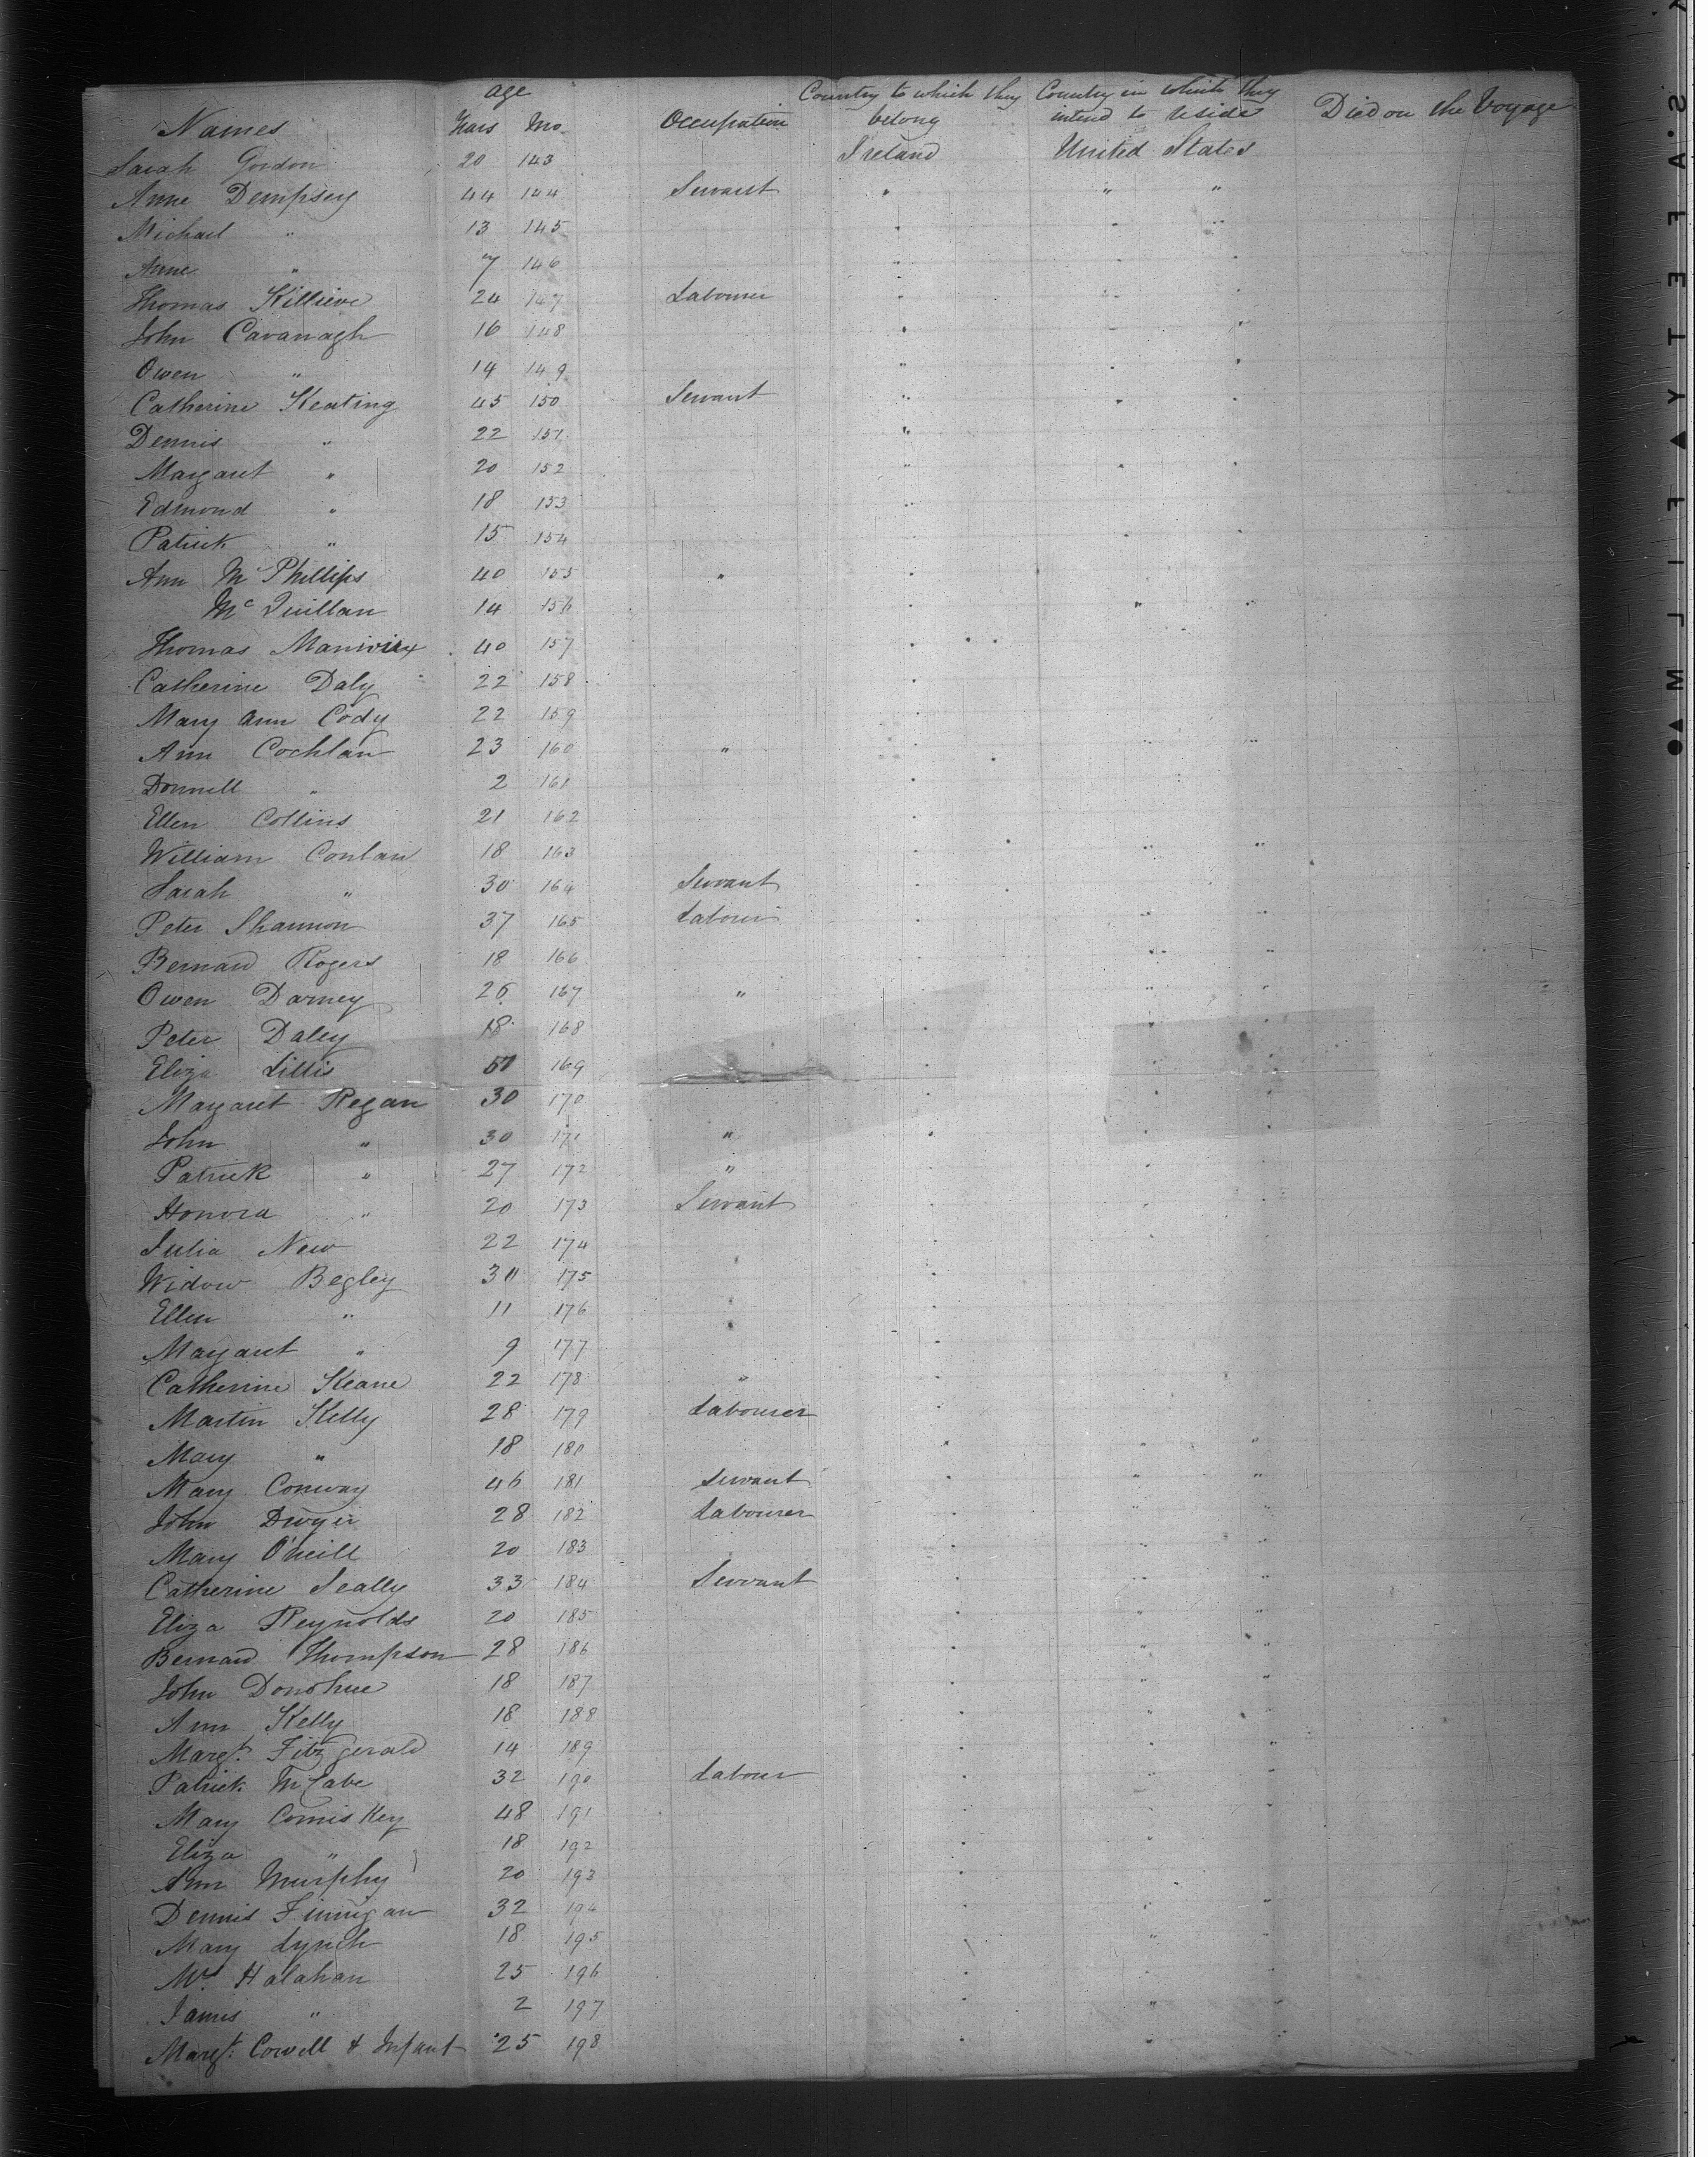 Names age Years Mo. Occupation Country to which they belong Country in which they intend to reside Died on the Voyage
Sarah Gordon 20 143 Ireland United States
Anne Dempsey 44 144 Servant " " "
Michael " 13 145 " " "
Anne " 7 146 " " "
Thomas 24 147 Labourer " " "
John Cavanagh 16 148 " "
Owen " 14 149 " " "
Catherine Keating 45 150 Servant " " "
Dennis " 22 151 "
Margaret " 20 152 " " "
Edmond " 18 153 "
Patrick " 15 154 " "
Ann Mc Phillips 40 155 " "
Mc Quillan 14 156 " " "
Thomas 40 157 "
Catherine Daly 22 158 "
Mary Ann Cody 22 159 "
Ann Cochlan 23 160 " " " "
Donnell " 2 161 "
Ellen Collins 21 162 "
William Conlan 18 163 " " "
Sarah " 30 164 Servant "
Peter Shannon 37 165 Labour " " "
Bernard Rogers 18 166 " " "
Owen Darney 26 167 " " "
Peter Daley 18 168 " " "
Eliza Lillis 169 " " "
Margaret Regan 30 170 " " "
John " 30 171 " " " "
Patrick " 27 172 " " "
Honora " 20 173 Servant " " "
Julia New 22 174 " "
Widow Begley 30 175 " "
Ellen " 11 176 " "
Margaret " 9 177 "
Catherine Keane 22 178 " "
Martin Kelly 28 179 Labourer "
Mary " 18 180 " " "
Mary Conway 46 181 Servant " " "
John Dwyer 28 182 Labourer " " "
Mary O'neill 20 183 " " "
Catherine Scally 33 184 Servant " " "
Eliza Reynolds 20 185 " " "
Bernard Thompson 28 186 " " "
John Donohue 18 187 " " "
Ann Kelly 18 188 " " "
Margt. Fitzgerald 14 189 " " "
Patrick McCabe 32 190 Labour " " "
Mary Comiskey 48 191 " "
Eliza " 18 192 " "
Ann Murphy 20 193 "
Dennis Finnigan 32 194 " " "
Mary Lynch 18 195 " "
Mrs Halahan 25 196 " "
James " 2 197 " " "
Margt. Cowell & Infant 25 198 " " "